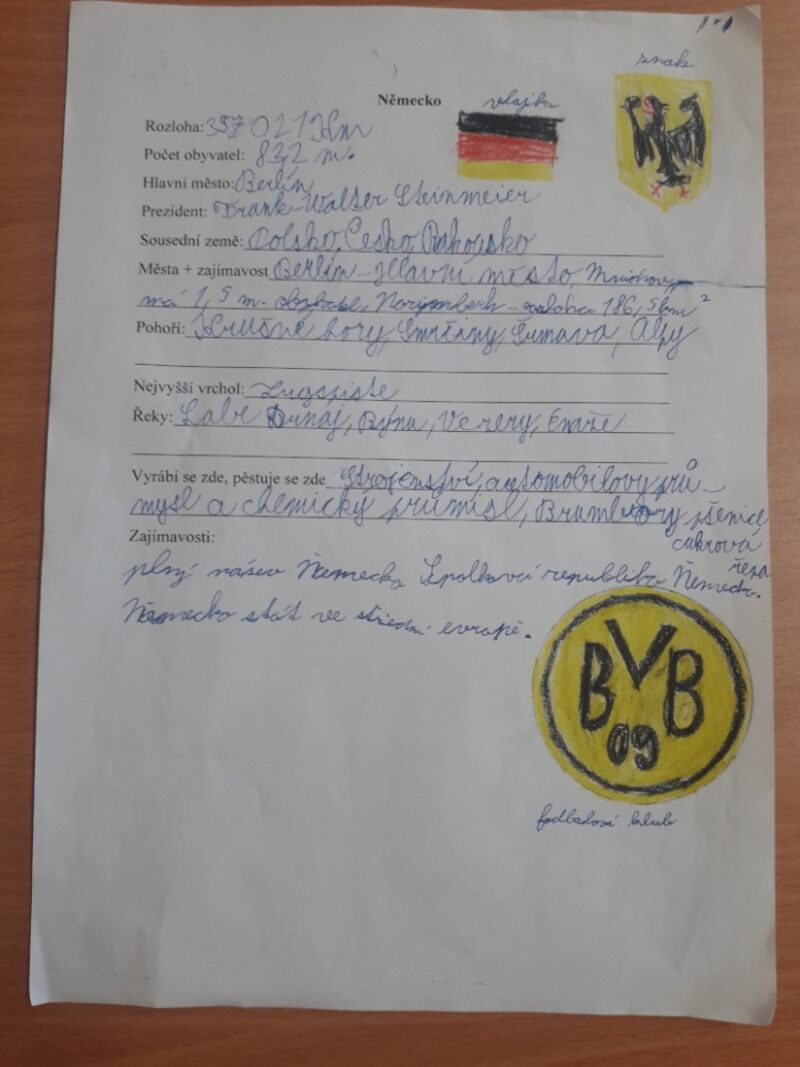 znak
Německo vlajka
Rozloha: 357021 Km
Počet obyvatel: 83,2 m.
Hlavní město: Berlín
Prezident: Frank-Walter Steinmeier
Sousední země: Polsko, Česko, Rakousko
Města + zajímavost Berlín - Hlavní město, Mnichov
má 1,5 m. obyvatel, Norimberk - rozloha 186,5 km²
Pohoří: Krušné hory, Smrčiny, Šumava, Alpy
Nejvyšší vrchol: Zugspiste
Řeky: Labe Dunaj, Rýnu, Vezery, Emže
Vyrábí se zde, pěstuje se zde Strojenství, automobilový prů-
mysl a chemický průmisl, Brambory pšenice
cukrová
Zajímavosti:
řepa
plný násev Německa Spolková republika Německo.
Německo stát ve střední evropě.
BVB
09
fodbaloví klub